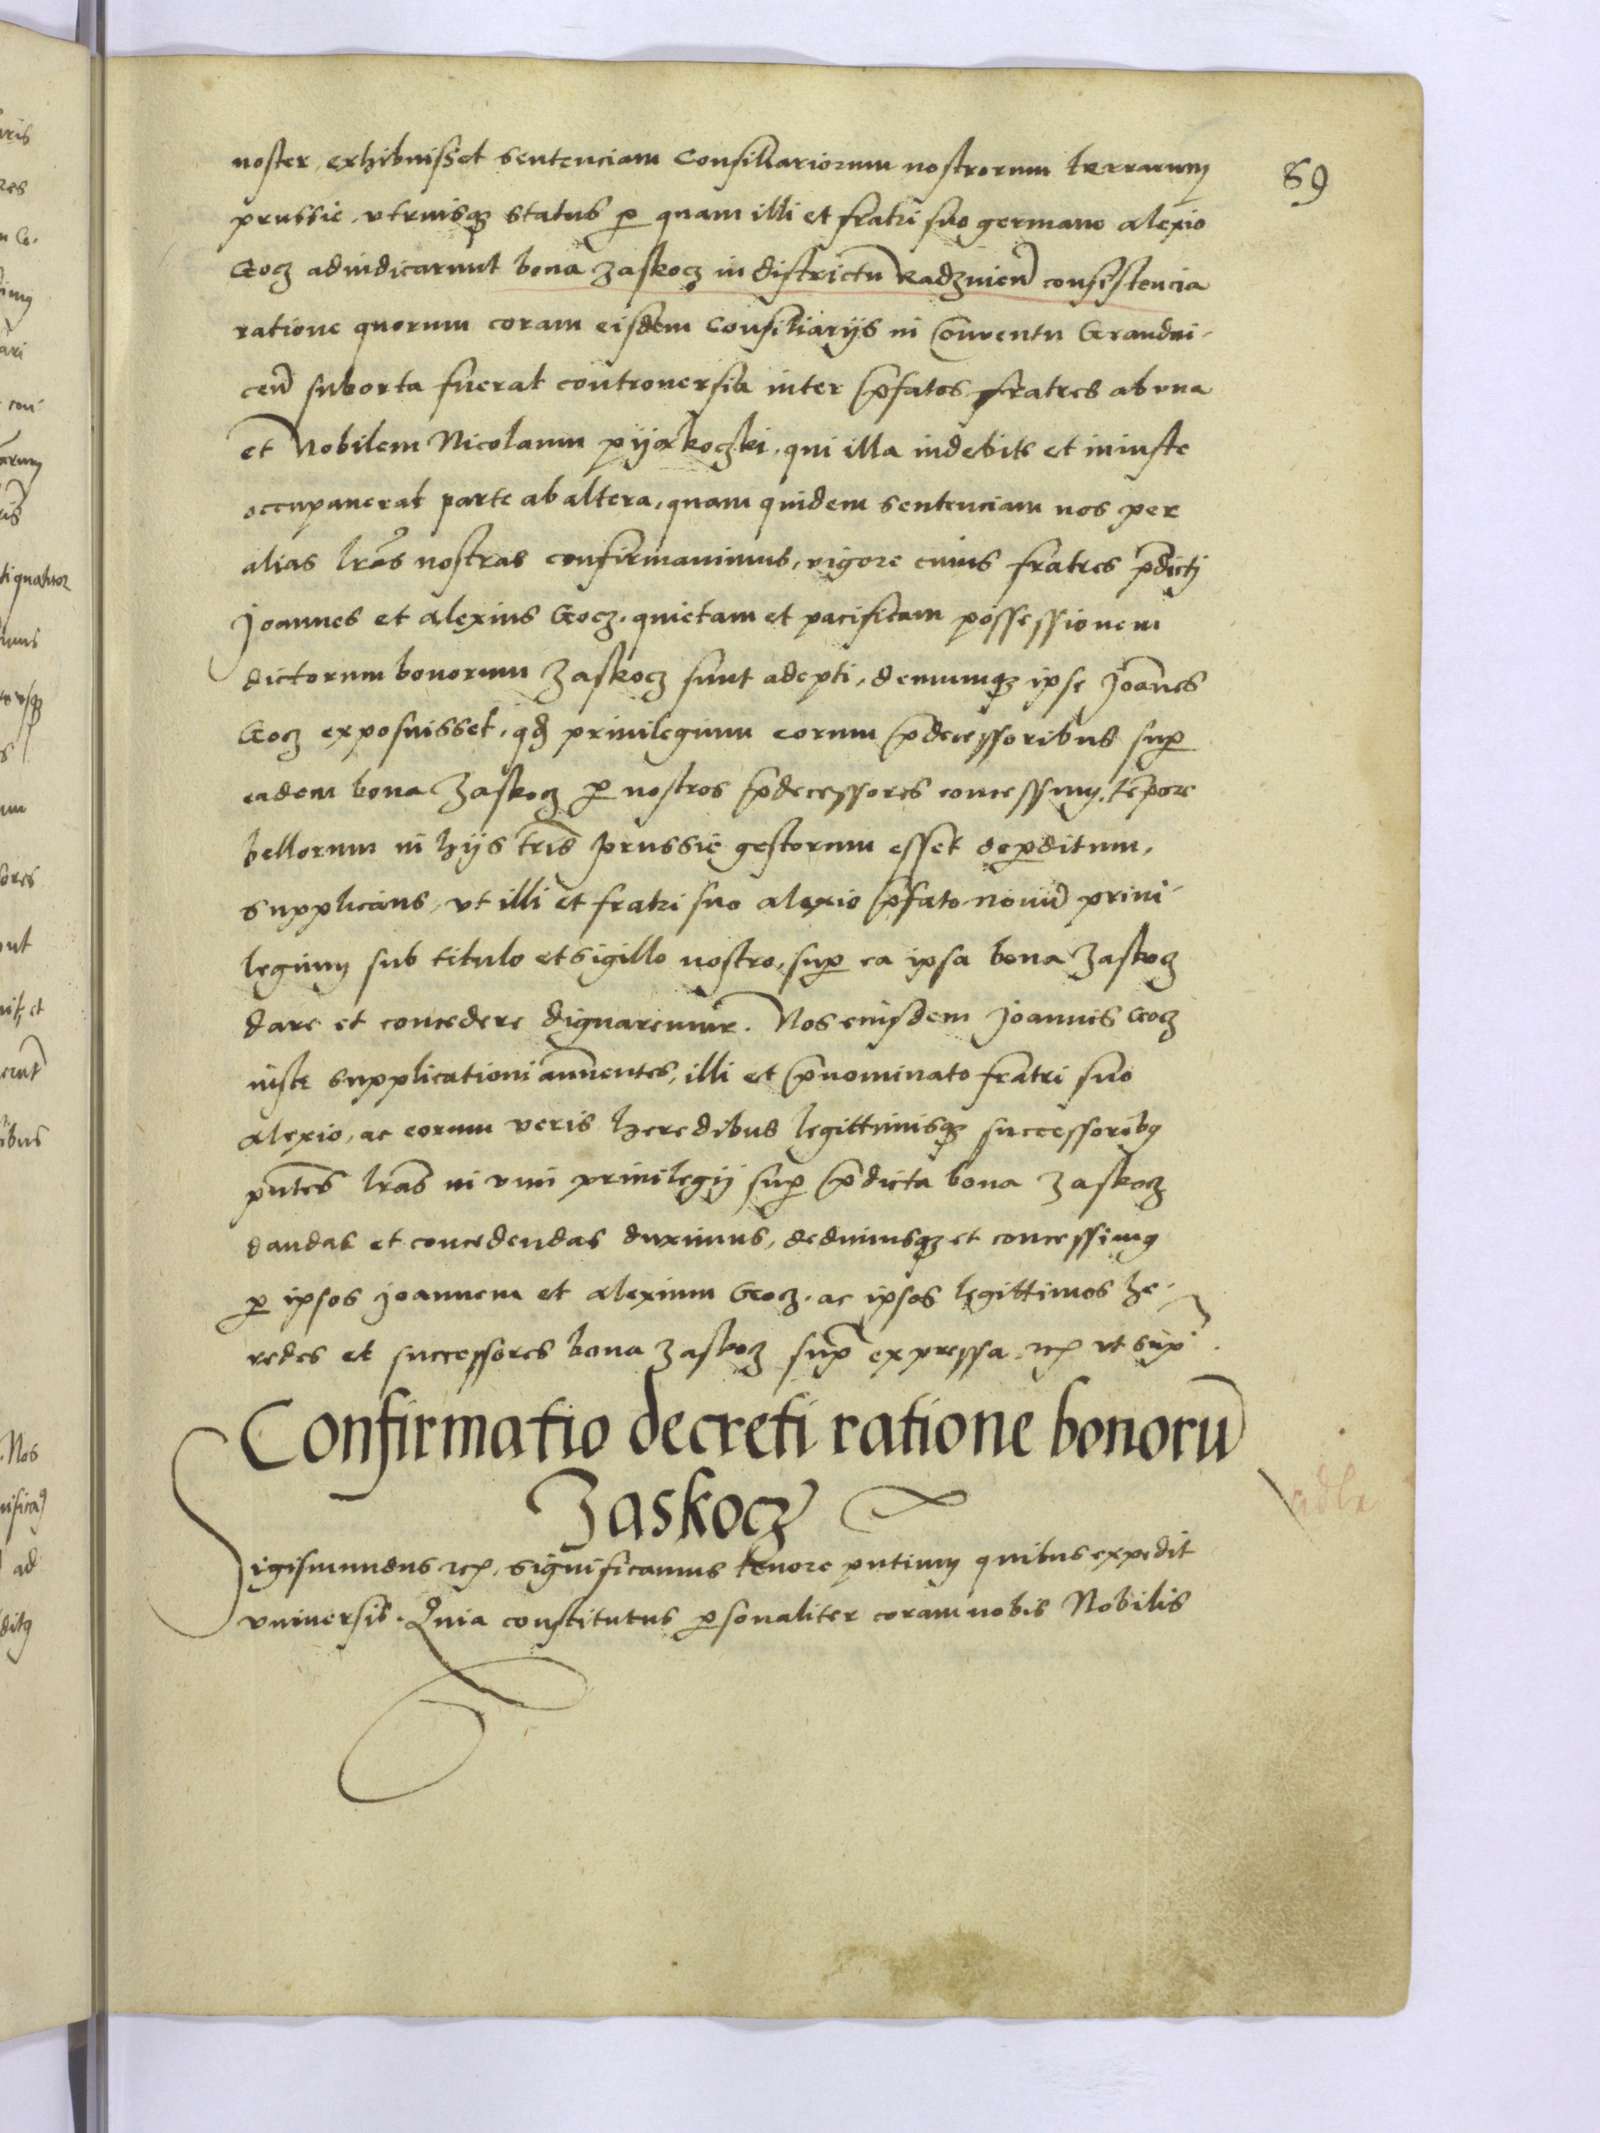 89
noster, exhibuisset sentenciam Consiliariorum nostrorum terrarum
prussie, utriusqȝ status ꝑ quam illi et fratri suo germano alexio
Gocz adiudicarunt bona Zaskocz in districtu Radzinen̄ consistencia
ratione quorum coram eisdem Consiliarijs in Conventu Graudni-
cen̄ suborta fuerat controversia inter p̄fatos fratres ab una
et Nobilem Nicolaum pijorkoczki, qui illa indebite et iniuste
occupaverat parte ab altera, quam quidem sentenciam nos per
alias lr̄as nostras confirmavimus, vigore cuius fratres p̄dictj
Joannes et alexius Gocz, quietam et pacificam possessionem
dictorum bonorum Zaskocz sunt adepti, demumqȝ ipse Joan̄es
Gocz exposuisset, qd̄ privilegium eorum p̄decessoribus suꝑ
eadem bona Zaskocz ꝑ nostros p̄decessores concessum, tēpore
bellorum in hijs tr̄is prussie gestorum esset deꝑditum,
supplicans, ut illi et fratri suo alexio p̄fato novū privi-
legium sub titulo et sigillo nostro, suꝑ ea ipsa bona Zaskocz
dare et concedere dignaremur. Nos eiusdem Joannis Gocz
iuste supplicationi annuentes, illi et p̄nominato fratri suo
alexio, ac eorum veris heredibus legittimisqȝ successoribꝯ
pn̄tes lr̄as in vim privilegij suꝑ p̄dicta bona Zaskocz
dandas et concedendas duximus, dedimusqȝ et concessimꝯ
ꝑ ipsos Joannem et alexium Gocz, ac ipsos legittimos he-
redes et successores bona Zaskocz sup̄ expressa ꝛcꝭ ut sup̄.
Confirmatio decreti ratione bonorū
Zaskocz
Sigismundus ꝛcꝭ, significamus tenore pn̄tium quibus expedit
universis. Quia constitutus ꝑsonaliter coram nobis Nobilis